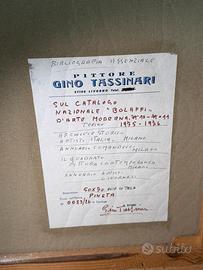 BIBLIOGRAFIA ESSENZIALE
PITTORE
GINO TASSINARI
57100 LIVORNO
SUL CATALOGO
NAZIONALE "BOLAFFI"
D'ARTE MODERNA, N° 10 - N° 11
TORINO 1975 - 1976
ARCHIVIO STORICO
ARTISTI ITALIA, MILANO
ANNUARIO COMANDUCCI MILANO
IL QUADRATO
PITTURA CONTEMPORANEA
MILANO
ANNUARIO ARTISTI
LIVORNESI
50X70 OLIO SU TELA
PINETA
Gino Tassinari
subito.it